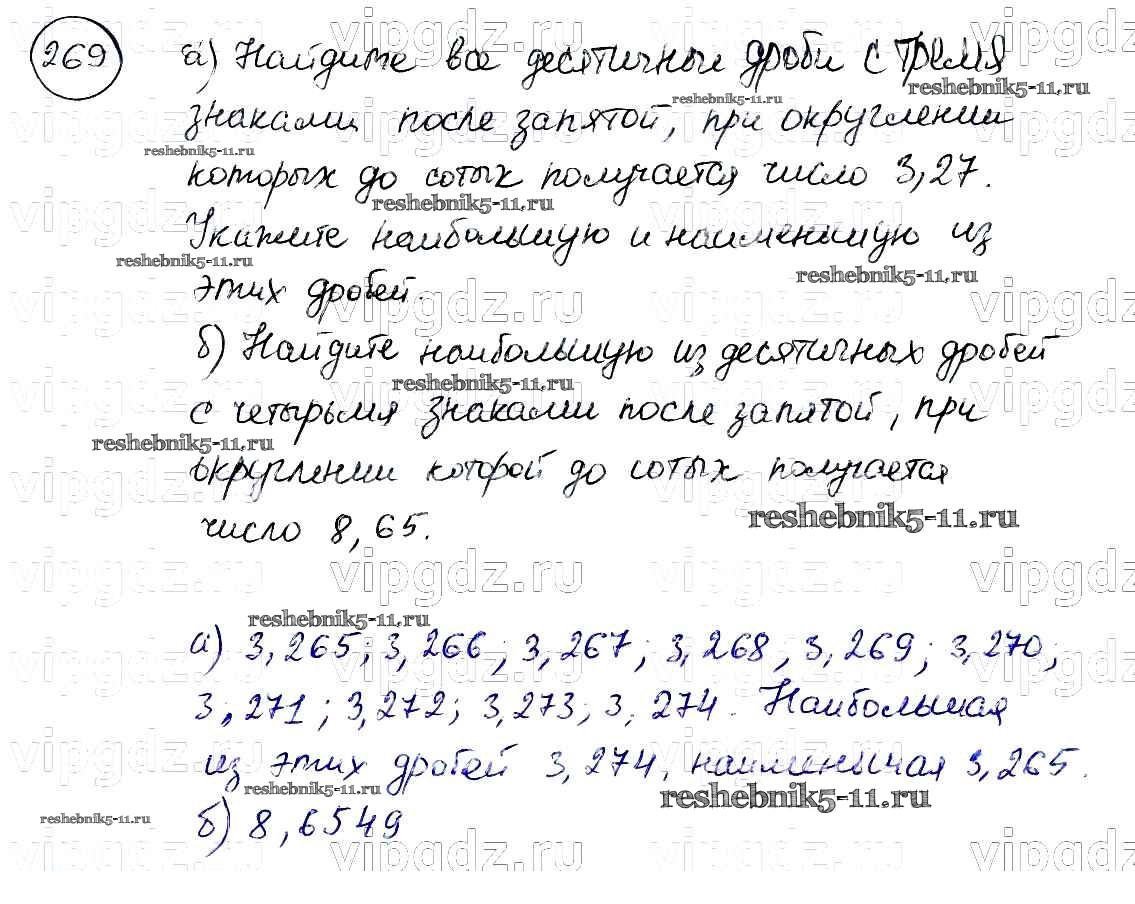 269 а) Найдите все десятичные дроби с тремя
знаками после запятой, при округлении
которых до сотых получается число 3,27.
Укажите наибольшую и наименьшую из
этих дробей.
б) Найдите наибольшую из десятичных дробей
с четырьмя знаками после запятой, при
округлении которой до сотых получается
число 8,65.
а) 3,265; 3,266; 3,267; 3,268, 3,269; 3,270;
3,271; 3,272; 3,273; 3,274. Наибольшая
из этих дробей 3,274, наименьшая 3,265.
б) 8,6549
vipgdz.ru
reshebnik5-11.ru